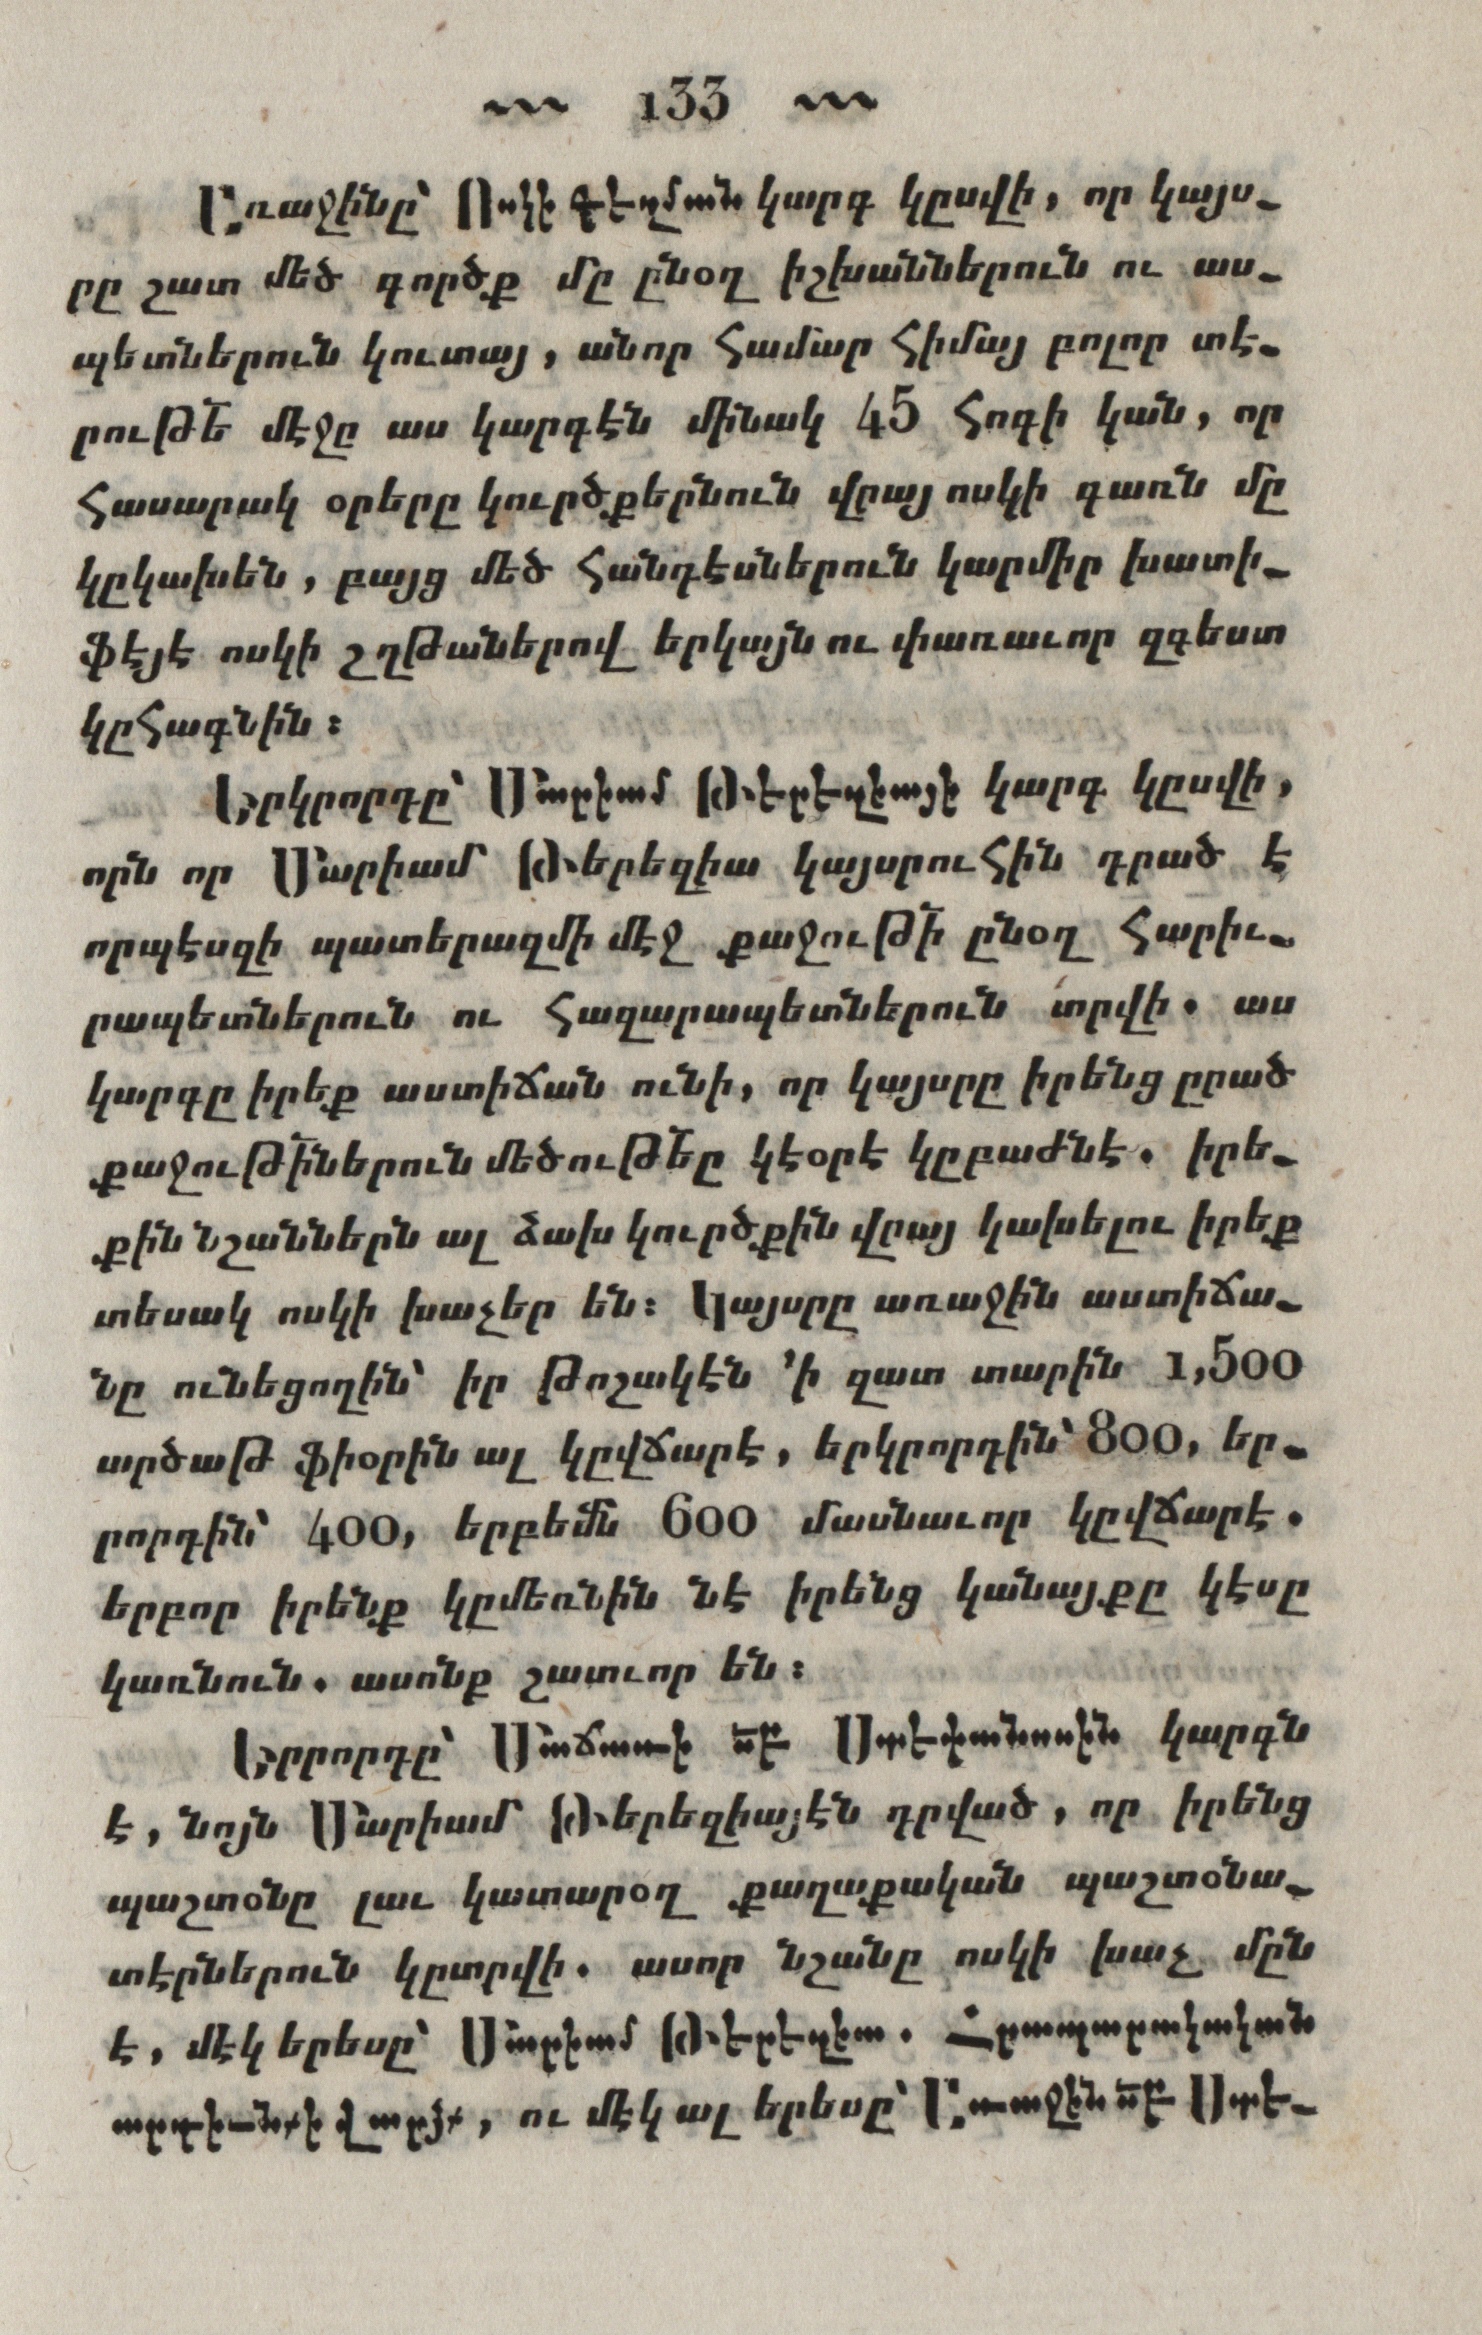 133
Առաջինը՝ Ոսկի գեղման կարգ կըսվի, որ կայս-
րը շատ մեծ գործք մը ընօղ իշխաններուն ու աս-
պետներուն կուտայ, անոր համար հիմայ բոլոր տէ-
րութե մէջը աս կարգէն մինակ 45 հոգի կան, որ
հասարակ օրերը կուրծքերնուն վրայ ոսկի գառն մը
կըկախեն, բայց մեծ հանդէսներուն կարմիր խատի-
ֆէյէ ոսկի շղթաներով երկայն ու փառաւոր զգեստ
կըհագնին։
Երկրորդը՝ Մարիամ Թերեզիայի կարգ կըսվի,
որն որ Մարիամ Թերեզիա կայսրուհին դրած է
որպէսզի պատերազմի մէջ քաջութի ընօղ հարիւ-
րապետներուն ու հազարապետներուն տրվի. աս
կարգը իրեք աստիճան ունի, որ կայսրը իրենց ըրած
քաջութիներուն մեծութեը կէօրէ կըբաժնէ. իրե-
քին նշաններն ալ ձախ կուրծքին վրայ կախելու իրեք
տեսակ ոսկի խաչեր են։ Կայսրը առաջին աստիճա-
նը ունեցողին՝ իր թոշակէն ՚ի զատ տարին 1,500
արծաթ ֆիօրին ալ կըվճարէ, երկրորդին՝ 800, եր-
րորդին՝ 400, երբեմն 600 մասնաւոր կըվճարէ.
երբոր իրենք կըմեռնին նէ իրենց կանայքը կէսը
կառնուն. ասոնք շատւոր են։
Երրորդը՝ Մաճառի սբ Ստեփանոսին կարգն
է, նոյն Մարիամ Թերեզիայէն դրված, որ իրենց
պաշտօնը լաւ կատարօղ քաղաքական պաշտօնա-
տէրներուն կըտրվի. ասոր նշանը ոսկի խաչ մըն
է, մէկ երեսը՝ Մարիամ Թերեզիա. Հրապարակական
արդիւնքի վարձք, ու մէկ ալ երեսը՝ Առաջին սբ Ստե-